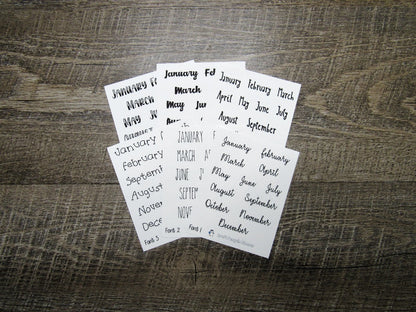 JANUARY FE
MARCH
MAY JU
AUGUST
January Fe
March
May June
Aug
January February March
April May June July
August September
January
February
September
August
November
Decem
Font 3
JANUARY
MARCH
JUNE
SEPTEM
NOVE
Font 2
Font 1
January February
March April
May June July
August September
October November
December